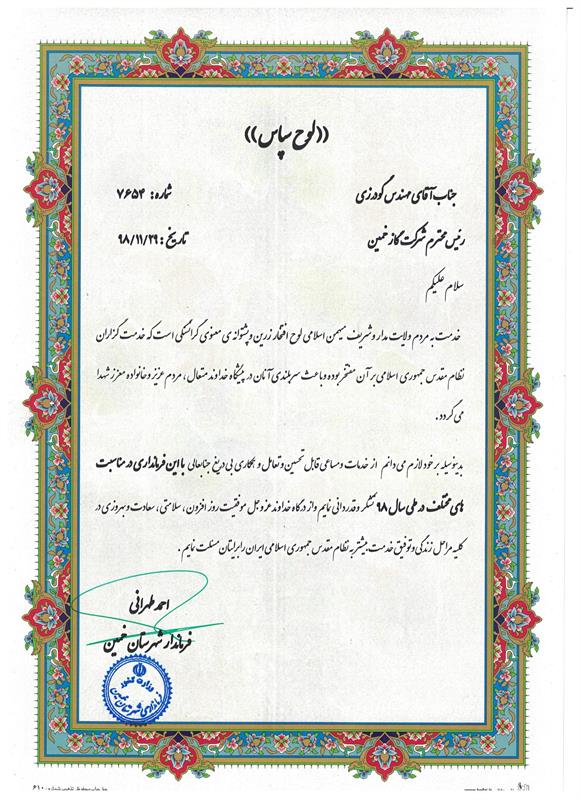 ((لوح سپاس))
جناب آقای مهندس گودرزی
شماره: ۷۶۵۴
رئیس محترم شرکت گاز خمین
تاریخ: ۹۸/۱۱/۲۹
سلام علیکم
خدمت به مردم ولایت مدار و شریف میهن اسلامی لوح افتخار زرین و پشتوانه ی معنوی گرانسنگی است که خدمت گزاران
نظام مقدس جمهوری اسلامی بر آن مفتخر بوده و باعث سربلندی آنان در پیشگاه خداوند متعال، مردم عزیز و خانواده معزز شهدا
می گردد.
بدینوسیله بر خود لازم می دانم از خدمات و مساعی قابل تحسین و تعامل و همکاری بی دریغ جنابعالی با این فرمانداری در مناسبت
های مختلف در طی سال ۹۸ تشکر و قدردانی نمایم و از درگاه خداوند عزوجل موفقیت روز افزون، سلامتی، سعادت و بهروزی در
کلیه مراحل زندگی و توفیق خدمت بیشتر به نظام مقدس جمهوری اسلامی ایران را برایتان مسئلت نمایم.
احمد طهرانی
فرماندار شهرستان خمین
وزارت کشور
فرمانداری شهرستان خمین
۶۱۰